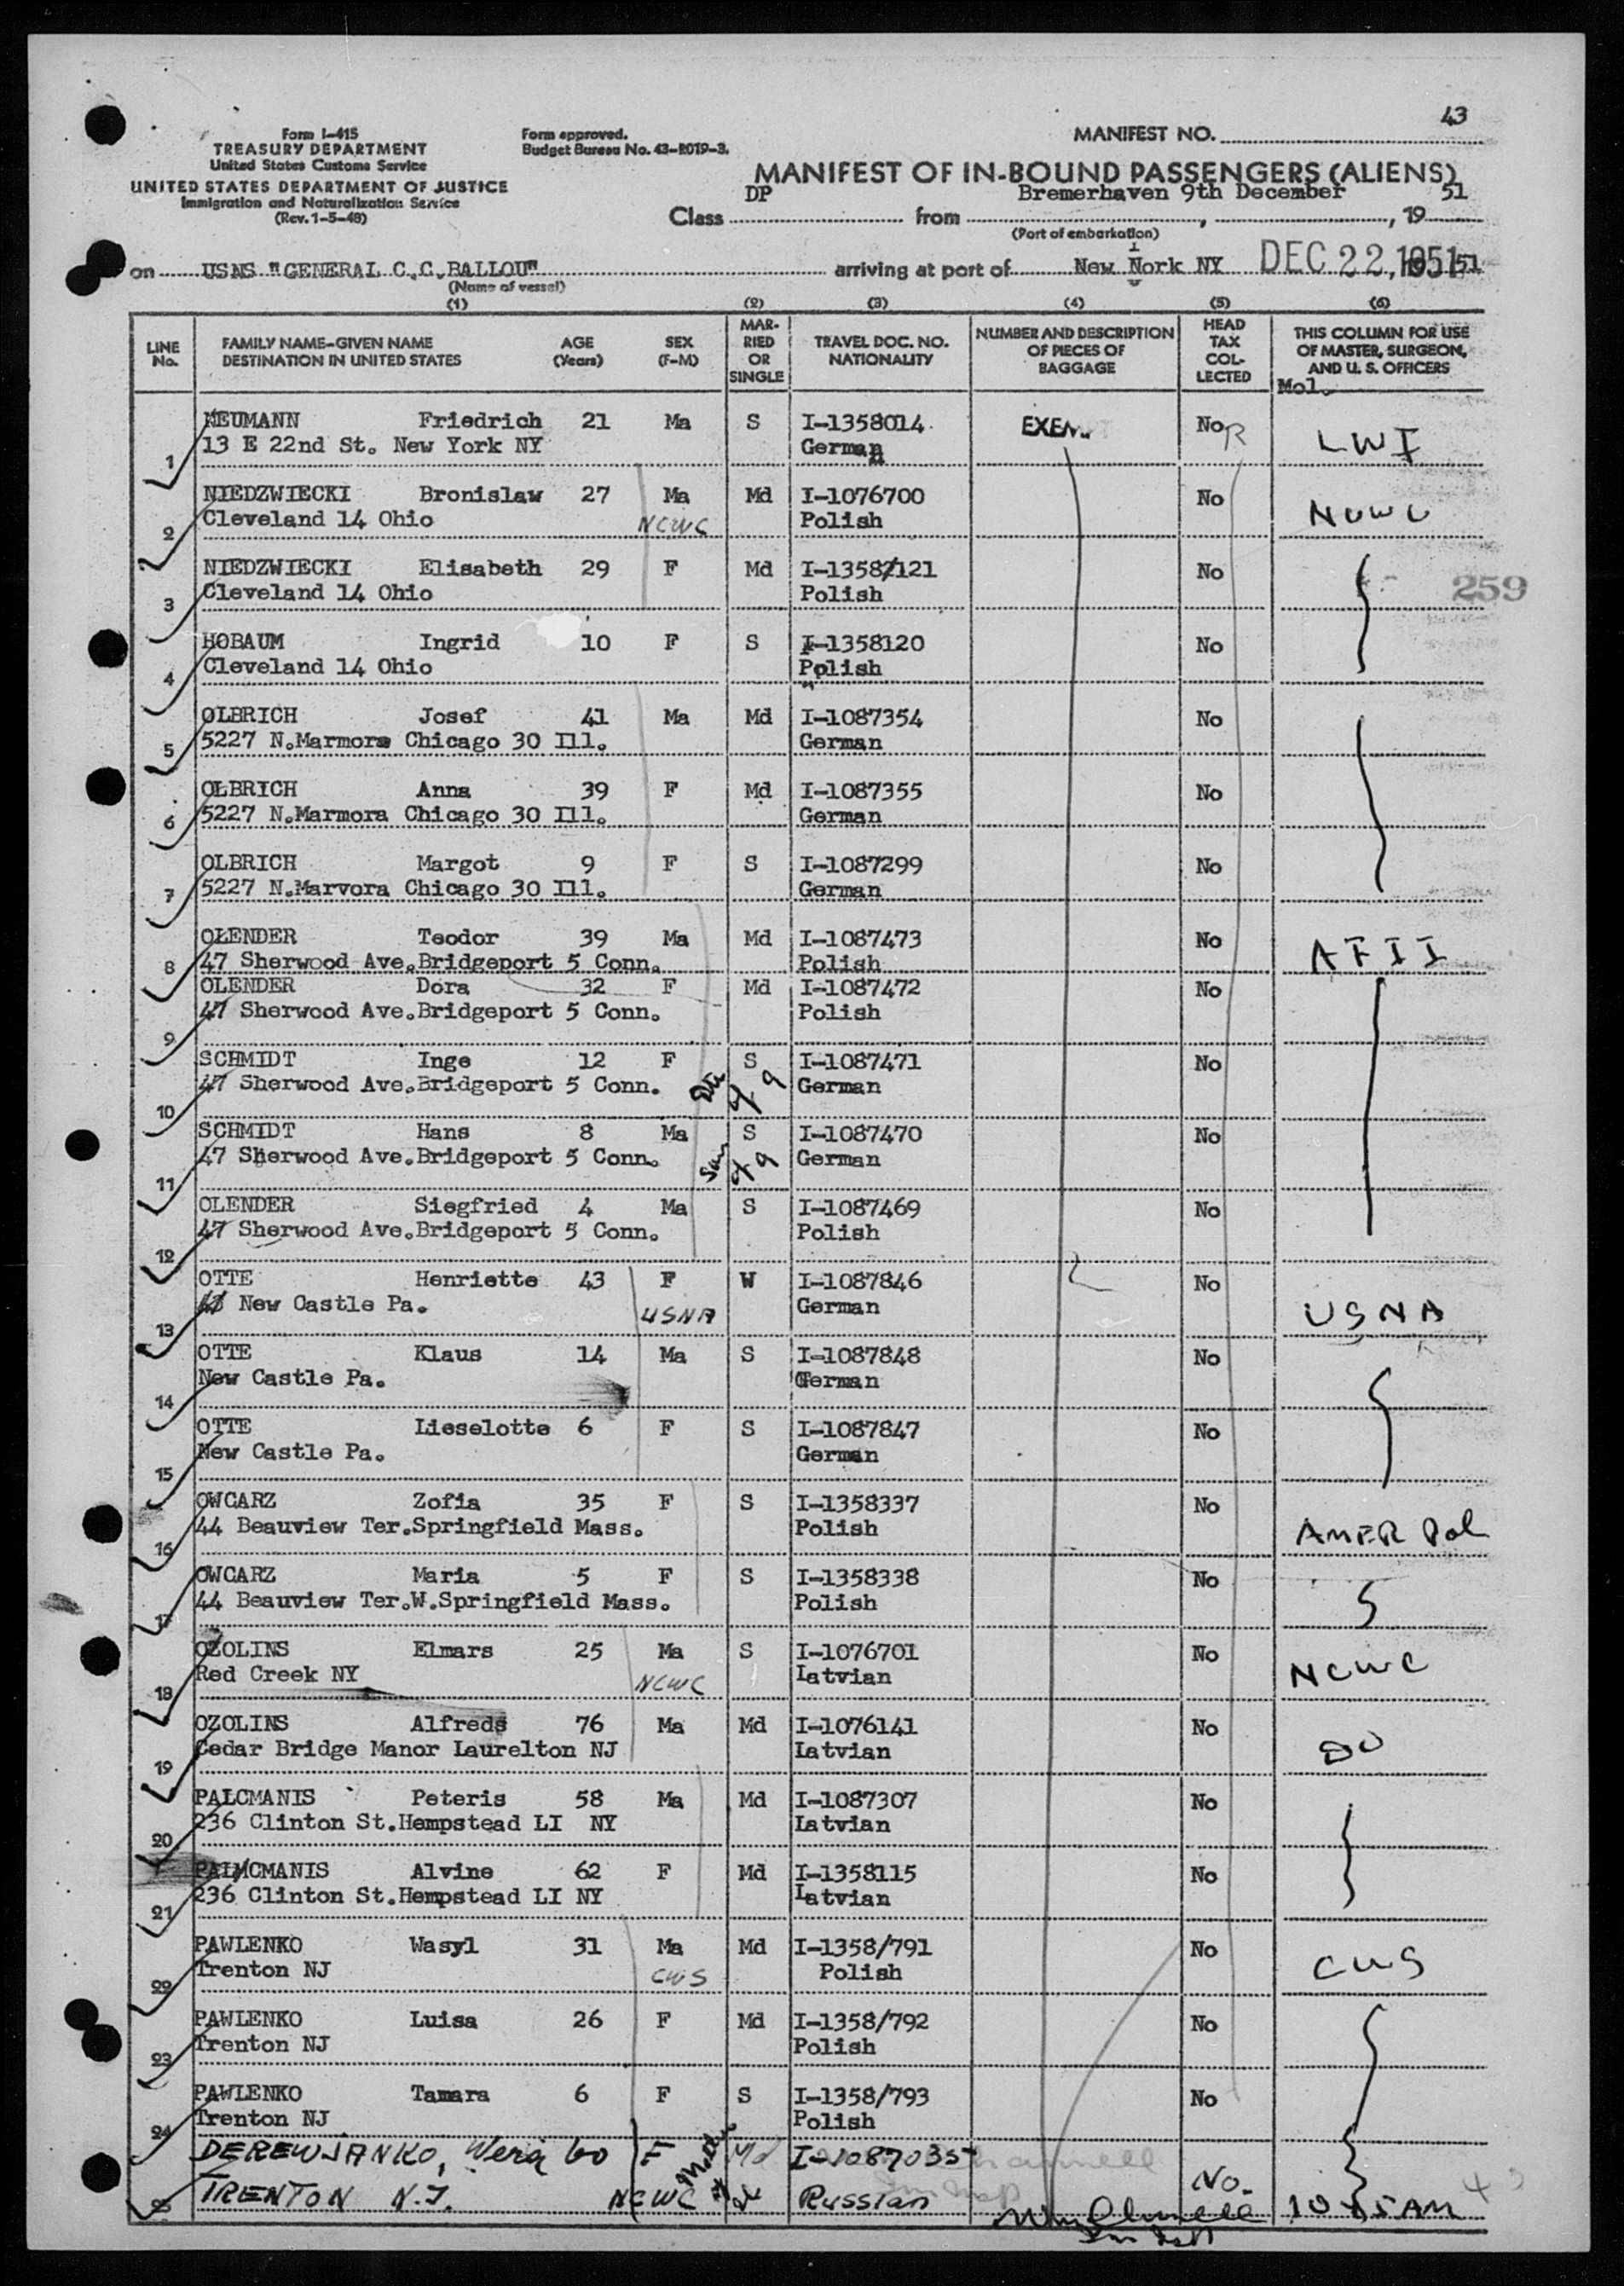 43
Form I-415
TREASURY DEPARTMENT
United States Customs Service
UNITED STATES DEPARTMENT OF JUSTICE
Immigration and Naturalization Service
(Rev. 1-5-48)
Form approved.
Budget Bureau No. 43-R019-3.
MANIFEST NO.
MANIFEST OF IN-BOUND PASSENGERS (ALIENS)
Class DP from Bremerhaven 9th December, 19 51
(Port of embarkation)
on USNS "GENERAL C.C.BALLOU" arriving at port of New York NY DEC 22, 1951 51
(Name of vessel)
(1) (2) (3) (4) (5) (6)
LINE No. FAMILY NAME-GIVEN NAME DESTINATION IN UNITED STATES AGE (Years) SEX (F-M) MARRIED OR SINGLE TRAVEL DOC. NO. NATIONALITY NUMBER AND DESCRIPTION OF PIECES OF BAGGAGE HEAD TAX COLLECTED THIS COLUMN FOR USE OF MASTER, SURGEON, AND U. S. OFFICERS
Mol.
NEUMANN Friedrich 21 Ma S I-1358014 No
1 13 E 22nd St. New York NY German LWF
NIEDZWIECKI Bronislaw 27 Ma Md I-1076700 No
2 Cleveland 14 Ohio NCWC Polish NCWC
NIEDZWIECKI Elisabeth 29 F Md I-1358/121 No
3 Cleveland 14 Ohio Polish 259
HOBAUM Ingrid 10 F S I-1358120 No
4 Cleveland 14 Ohio Polish
OLBRICH Josef 41 Ma Md I-1087354 No
5 5227 N.Marmora Chicago 30 Ill. German
OLBRICH Anna 39 F Md I-1087355 No
6 5227 N.Marmora Chicago 30 Ill. German
OLBRICH Margot 9 F S I-1087299 No
7 5227 N.Marvora Chicago 30 Ill. German
OLENDER Teodor 39 Ma Md I-1087473 No
8 47 Sherwood Ave.Bridgeport 5 Conn. Polish AFII
OLENDER Dora 32 F Md I-1087472 No
9 47 Sherwood Ave.Bridgeport 5 Conn. Polish
SCHMIDT Inge 12 F S I-1087471 No
10 47 Sherwood Ave.Bridgeport 5 Conn. German
SCHMIDT Hans 8 Ma S I-1087470 No
11 47 Sherwood Ave.Bridgeport 5 Conn. German
OLENDER Siegfried 4 Ma S I-1087469 No
12 47 Sherwood Ave.Bridgeport 5 Conn. Polish
OTTE Henriette 43 F W I-1087846 No
13 New Castle Pa. USNA German USNA
OTTE Klaus 14 Ma S I-1087848 No
14 New Castle Pa. German
OTTE Lieselotte 6 F S I-1087847 No
15 New Castle Pa. German
OWCARZ Zofia 35 F S I-1358337 No
16 44 Beauview Ter.Springfield Mass. Polish AMER Pol
OWCARZ Maria 5 F S I-1358338 No
17 44 Beauview Ter.W.Springfield Mass. Polish
OZOLINS Elmars 25 Ma S I-1076701 No
18 Red Creek NY NCWC Latvian NCWC
OZOLINS Alfreds 76 Ma Md I-1076141 No
19 Cedar Bridge Manor Laurelton NJ Latvian DO
PALCMANIS Peteris 58 Ma Md I-1087307 No
20 236 Clinton St.Hempstead LI NY Latvian
PALCMANIS Alvine 62 F Md I-1358115 No
21 236 Clinton St.Hempstead LI NY Latvian
PAWLENKO Wasyl 31 Ma Md I-1358/791 No
22 Trenton NJ CWS Polish CWS
PAWLENKO Luisa 26 F Md I-1358/792 No
23 Trenton NJ Polish
PAWLENKO Tamara 6 F S I-1358/793 No
24 Trenton NJ Polish
DEREWJANKO, Wera 60 F Md I-1087035 No.
25 TRENTON N.J. NCWC Russian 10 45 AM